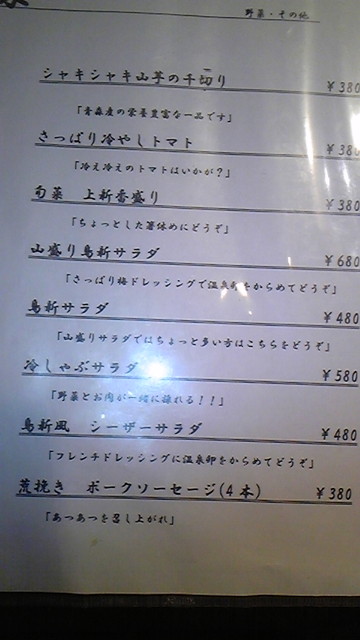 野菜・その他
シャキシャキ山芋の千切り ￥380
「青森産の栄養豊富な一品です」
さっぱり冷やしトマト ￥380
「冷え冷えのトマトはいかが？」
旬菜 上新香盛り ￥380
「ちょっとした箸休めにどうぞ」
山盛り鳥新サラダ ￥680
「さっぱり梅ドレッシングで温泉卵をからめてどうぞ」
鳥新サラダ ￥480
「山盛りサラダではちょっと多い方はこちらをどうぞ」
冷しゃぶサラダ ￥580
「野菜とお肉が一緒に採れる！！」
鳥新風 シーザーサラダ ￥480
「フレンチドレッシングに温泉卵をからめてどうぞ」
荒挽き ポークソーセージ(4本) ￥380
「あつあつを召し上がれ」